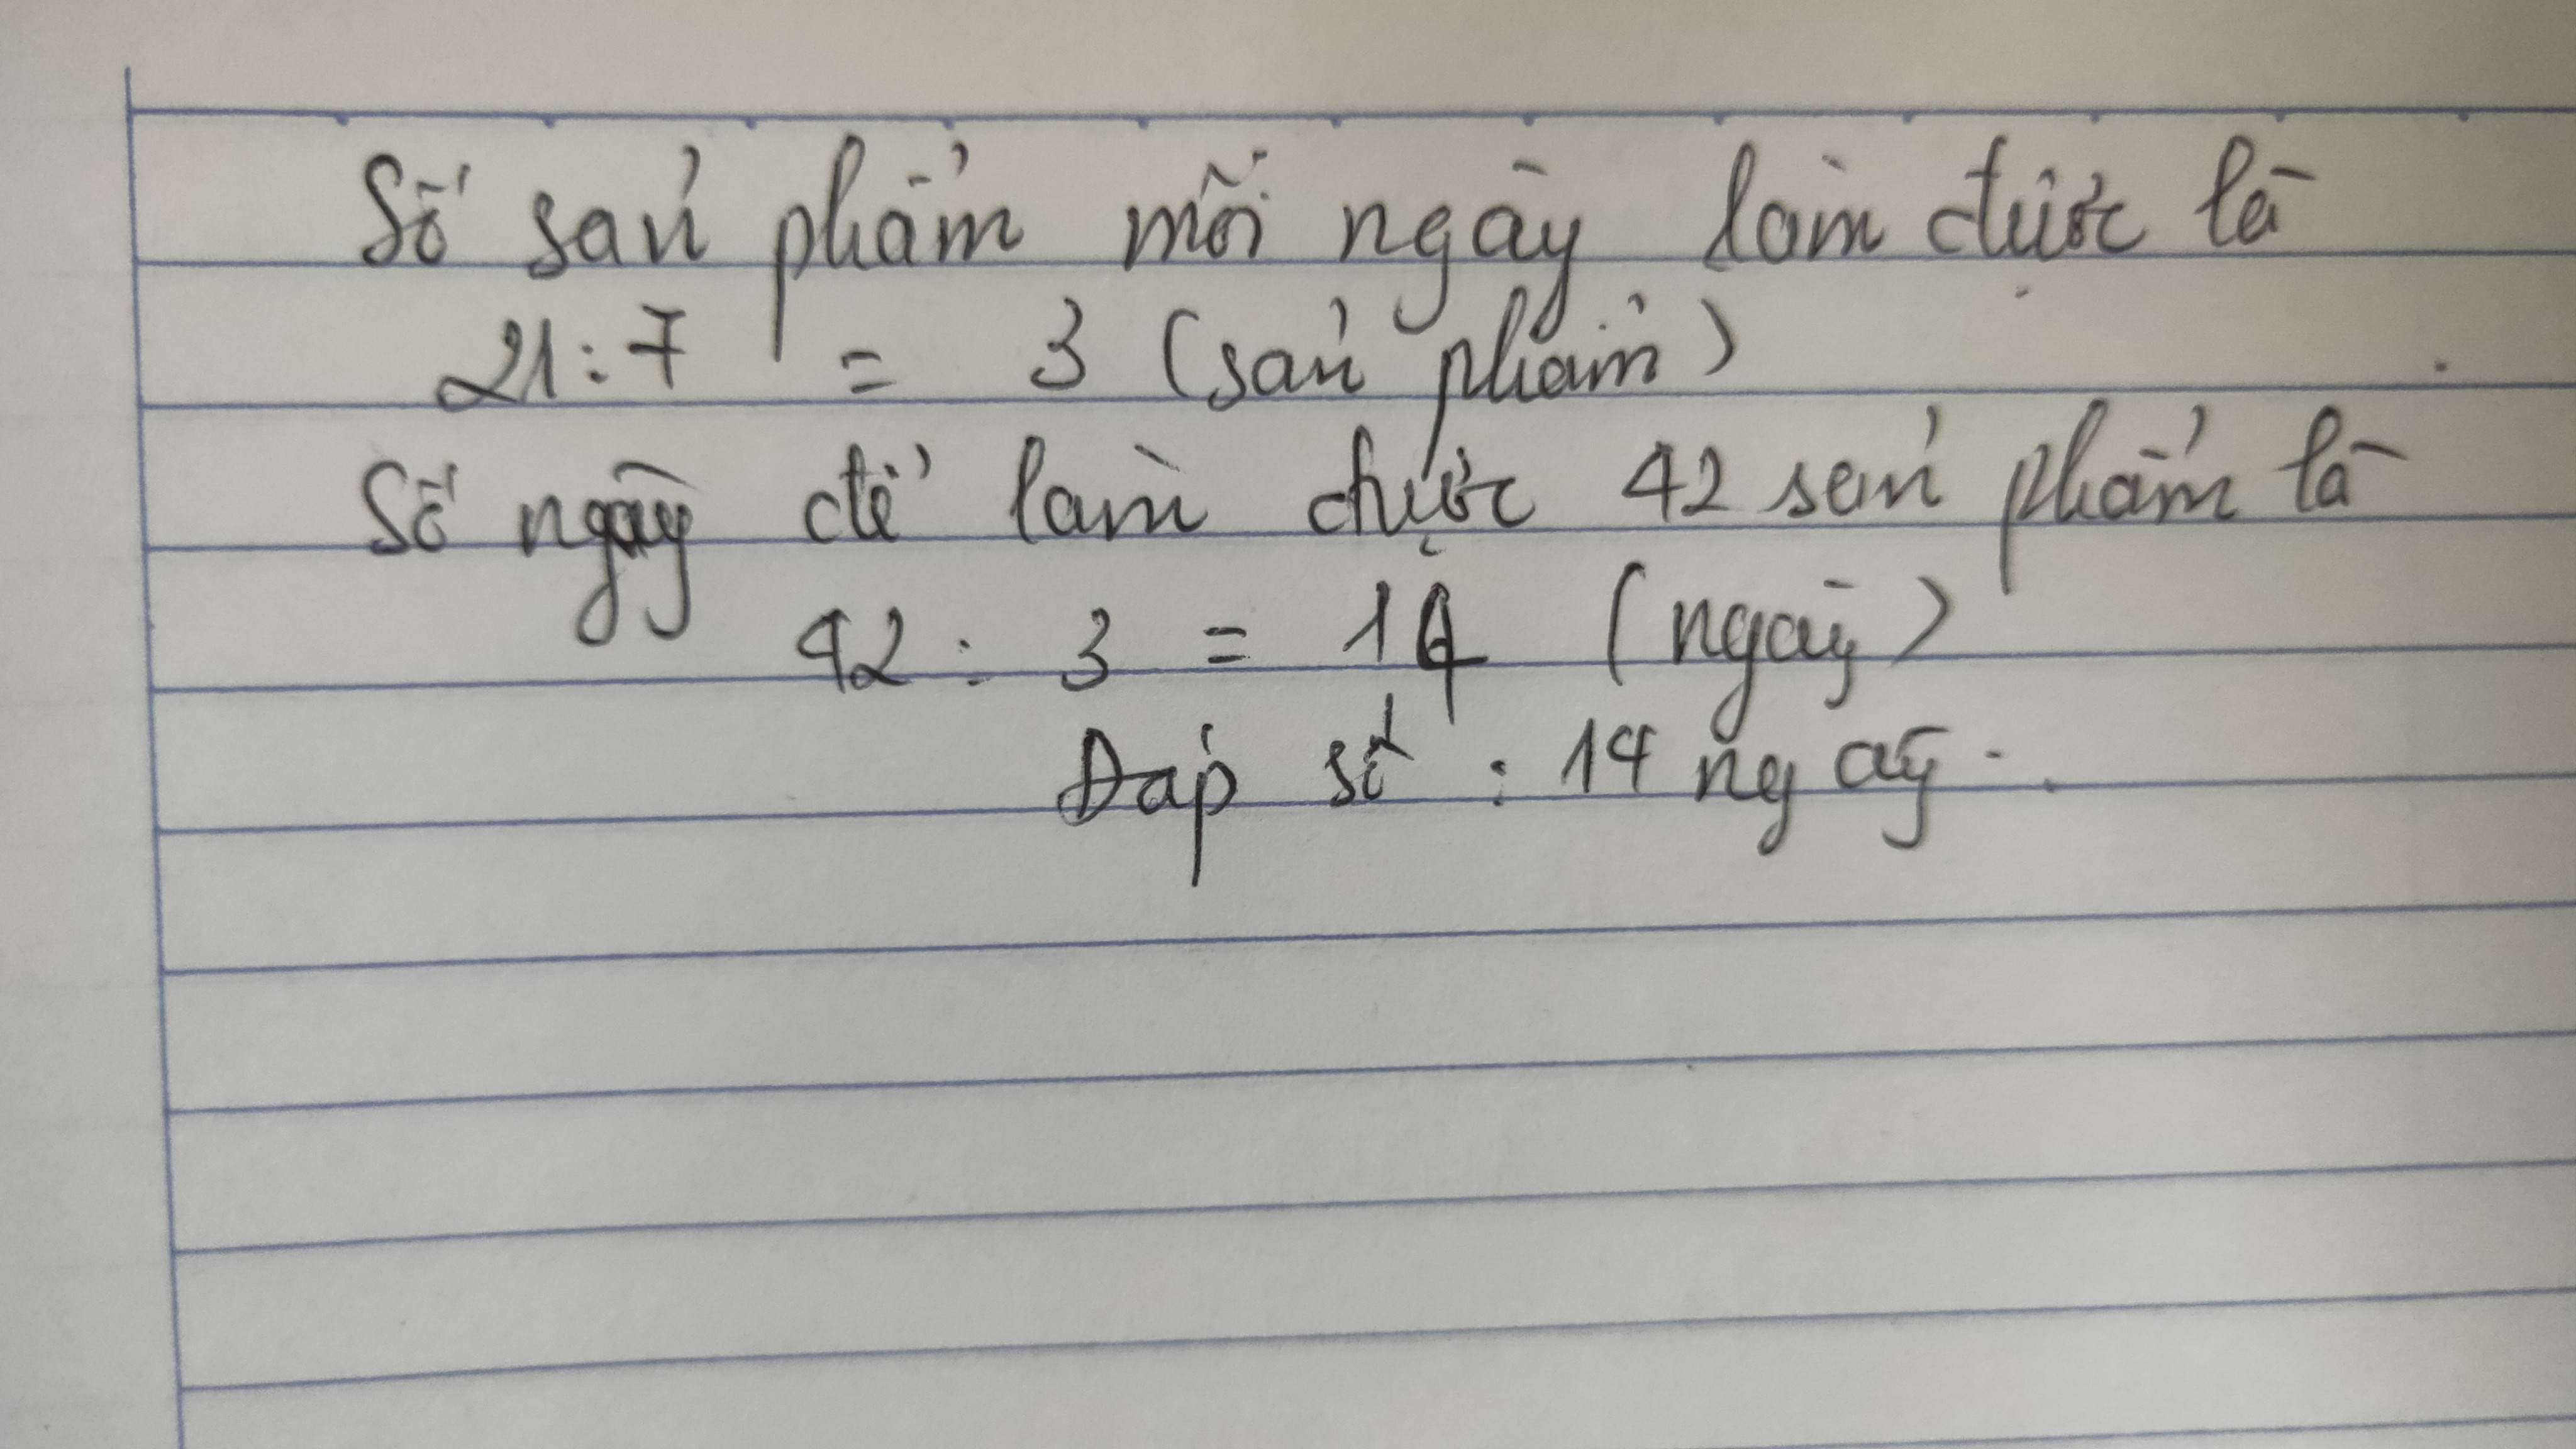 Số sản phẩm mỗi ngày làm được là
21 : 7 = 3 (sản phẩm)
Số ngày để làm được 42 sản phẩm là
42 : 3 = 14 (ngày)
Đáp số : 14 ngày.